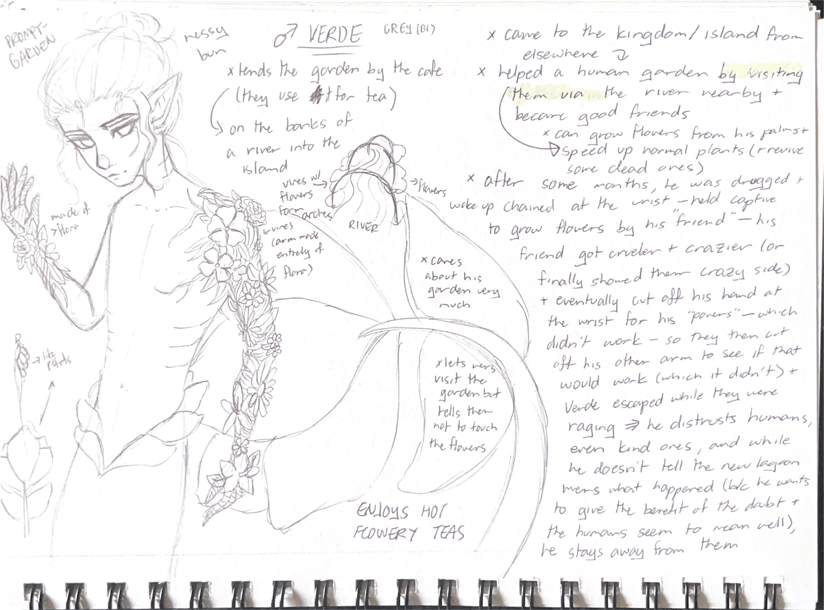 PROMPT-
GARDEN
messy
bun
♂ VERDE
GREY (BI)
x tends the garden by the cafe
(they use it for tea)
on the banks of
a river into the
island
vines w/
flowers
for arches
flowers
RIVER
made of
flora
vines
(arm made
entirely of
flora)
x cares
about his
garden very
much
x lets mers
visit the
garden but
tells them
not to touch
the flowers
petals
ENJOYS HOT
FLOWERY TEAS
x came to the kingdom/island from
elsewhere
x helped a human garden by visiting
them via the river nearby +
became good friends
x can grow flowers from his palms +
speed up normal plants (+ revive
some dead ones)
x after some months, he was drugged +
woke up chained at the wrist - held captive
to grow flowers by his "friend" - his
friend got crueler + crazier (or
finally showed them crazy side)
+ eventually cut off his hand at
the wrist for his "powers" - which
didn't work - so they then cut
off his other arm to see if that
would work (which it didn't) +
Verde escaped while they were
raging ⇒ he distrusts humans,
even kind ones, and while
he doesn't tell the new lagoon
mers what happened (b/c he wants
to give the benefit of the doubt +
the humans seem to mean well),
he stays away from them